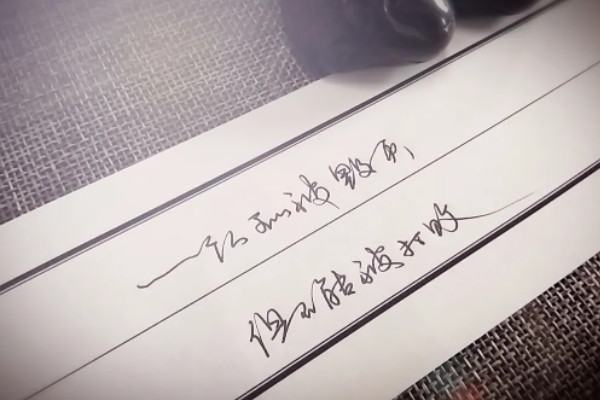 一个人可以被毁灭,
但不能被打败